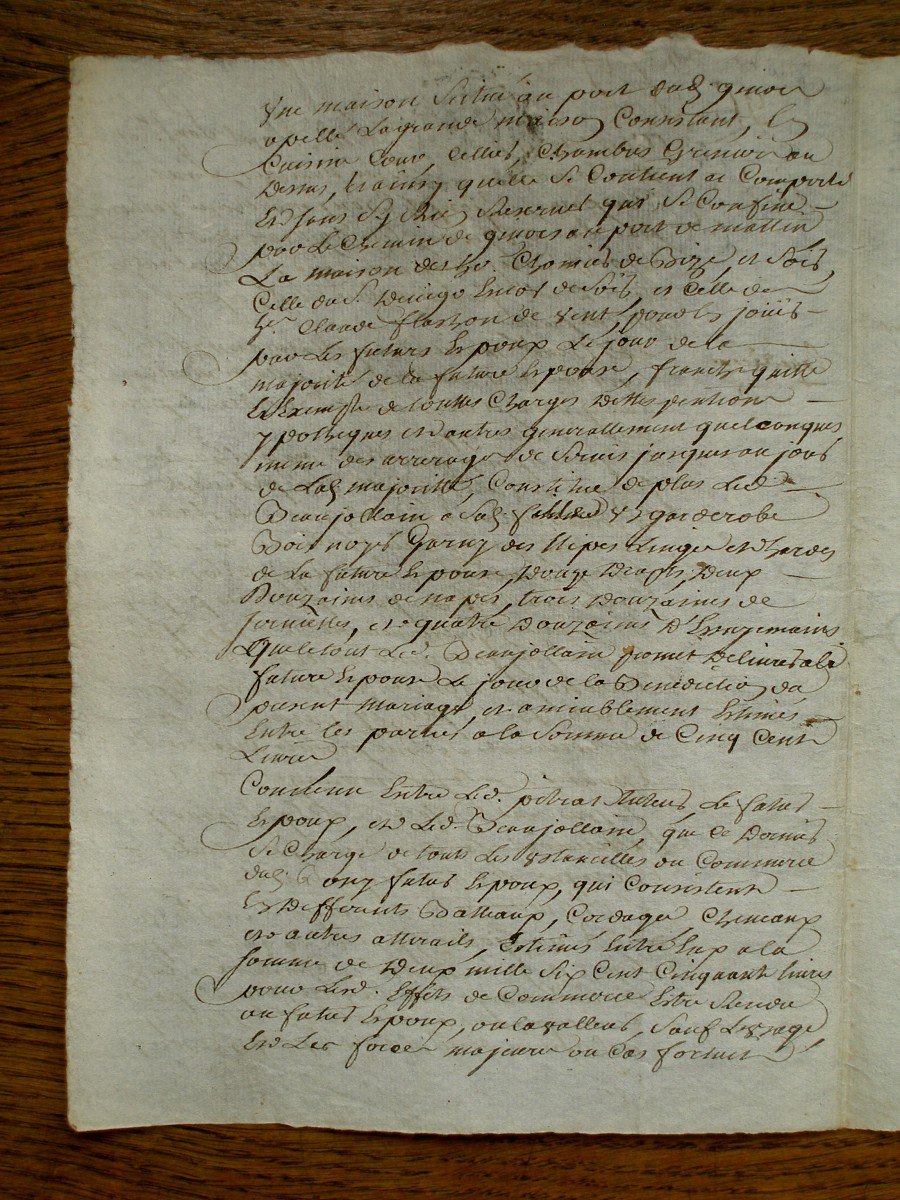 Une maison scitué au port dud. givors
apellé La grande maison Consistant, En
Cuisine Cave, Cellier, Chambres Grenier au
Dessus, Et ainsy quelle Se Contient et Comporte
Et sans S'y Rien Reserver qui Se Confine
par Le Chemin de givors au port de matin
La maison des de Bize, et Soir,
Celle du Sr. de Soir, et Celle de
Sr. Claude flachon de vent, pour En jouir
par Les futurs Epoux Le jour de la
majorité de la future Epouse, franche quitte
Et Exempte de touttes Charges Dettes pentions
ypotheques et autres generallement quelconques
meme des arrerages de Servis jusques au jour
de Lad. majorité, Constitue de plus Led.
Beaujollain a Sad. fille un garderobe
Bois noyer Garny des Nipes Linges et hardes
de La future Epouse, Douze Draps, Deux
Douzaines de napes, trois Douzaines de
serviettes, et quatre Douzaines D'Essuyemains
Que le tout Led. Beaujollain promet Delivrer a la
future Epouse Le jour de la Benediction du
present Mariage, et amiablement Estimés
Entre les parties a la Somme de Cinq Cent
Livres
Convenu Entre Led. pitrat, Le futur
Epoux, et Led. Beaujollain, que Ce Dernier
Se Charge de touts Les Ustancilles du Commerce
dud. futur Epoux, qui Consistent
En Differents Batteaux, Cordages, Chevaux
et autres attirails, Estimés Entre Eux a la
somme de Deux mille Six Cent Cinquante livres
pour Lesd. Effets de Commerce Estre Rendu
au futur Epoux, ou la valleur, Sauf L'usage
Et Les forces majeures ou Cas fortuit